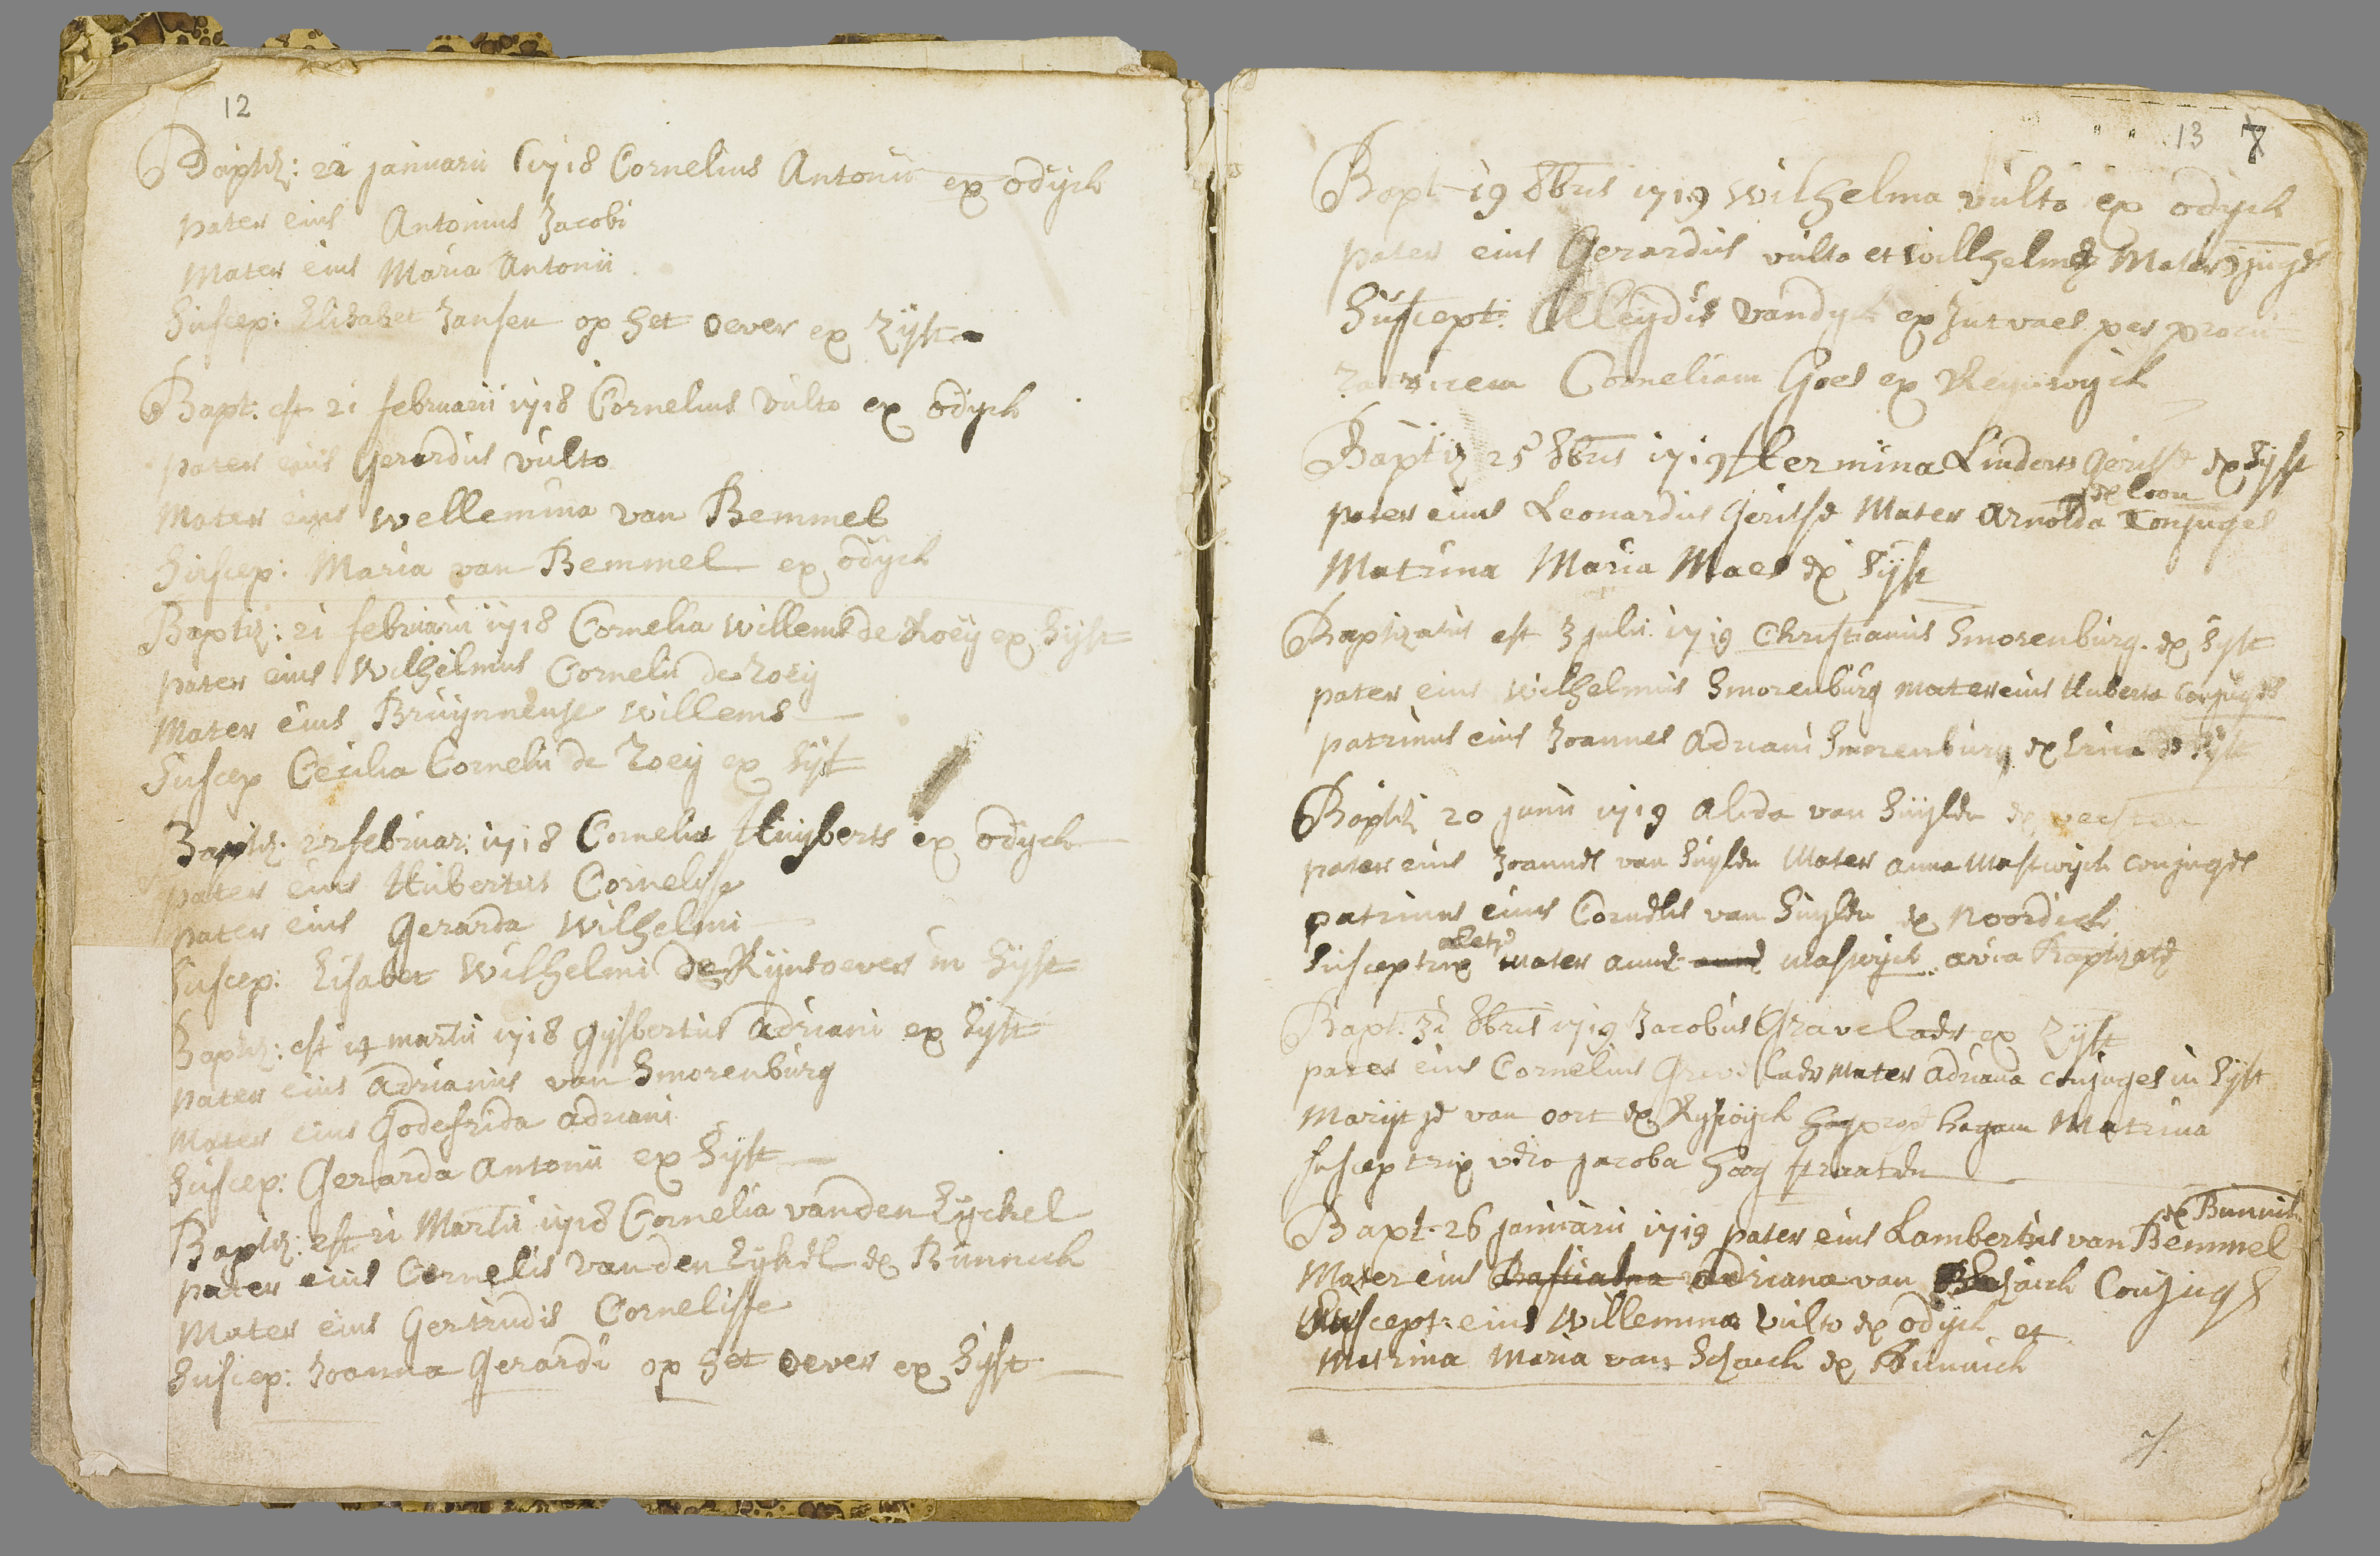 12
Baptiz: 22 januarii 1718 Cornelius Antonii ex odijck
pater eius Antonius Jacobi
Mater eius Maria Antonii
Suscep: Elisabet Jansen op het oever ex Zijst
Bapt: est 21 februarii 1718 Cornelius Vulto ex odijck
pater eius Gerardus vulto
Mater eius Wellemina van Bemmel
Suscep: Maria van Bemmel ex odijck
Baptiz: 21 februarii 1718 Cornelia Willems de Roeÿ ex Zijst
pater eius Wilhelmus Cornelii de Roeij
Mater eius Bruijnnensje Willems
Suscep Cecilia Cornelii de Roeij ex Zijst
Baptiz: 22 februar: 1718 Cornelis Huijberts ex odijck
pater eius Hubertus Cornelisse
pater eius Gerarda Wilhelmi
Suscep: Lisabet Wilhelmi de Rijnsoever in Zijst
Baptiz: est 14 martii 1718 Gijsbertus Adriani ex Zijst
pater eius Adrianus van Smorenburg
Mater eius Godefrida Adriani
Suscep: Gerarda Antonii ex Zijst
Baptiz: est 21 Martii 1718 Cornelia vanden Eijckel
pater eius Cornelis vanden Eijkel ex Bunnick
Mater eius Gertrudis Cornelisse
Suscep: Joanna Gerardi op het oever ex Zijst
13 7
Bapt 19 8bris 1719 Wilhelma vulto ex odijck
pater eius Gerardus vulto et willhelma Mater
Suscept: Alleijdis Vandyck ex Jutvaes per procu
Corneliam Goes ex Reijnwijck
Baptiz 25 8bris 1719 Hermina Linders Geritse ex Zijst
de loon
pater eius Leonardus Geritse Mater Arnolda Conjuges
Matrina Maria Maes ex Zijst
Baptizatus est 3 julii 1719 Christianus Smorenburg ex Zijst
pater eius Wilhelmus Smorenburg mater eius Huberta conjuges
patrinus eius Joannes Adriani Smorenburg ex
Baptiz 20 junii 1719 Alida van Suijlen ex vechten
pater eius Joannes van Suijlen Mater anna Mastwijck conjuges
patrinus eius Cornelis van Suijlen ex Noordick
Susceptrix mater annae maswijck avia Baptizatae
Bapt. 31 8bris 1719 Jacobus Gravelaer ex Zijst
pater eius Cornelius Mater Adriana conjuges in Zijst
Marijtje van oort ex Rijswijck Matrina
susceptrix vero jacoba hoog straaten
ex Bunnik
Bapt. 26 januarii 1719 pater eius Lambertus van Bemmel
Mater eius Adriana van Schaick Conjuges
Suscept: eius Willemina Vulto ex odijck et
Matrina Maria van Schaick ex Bunnick
7.